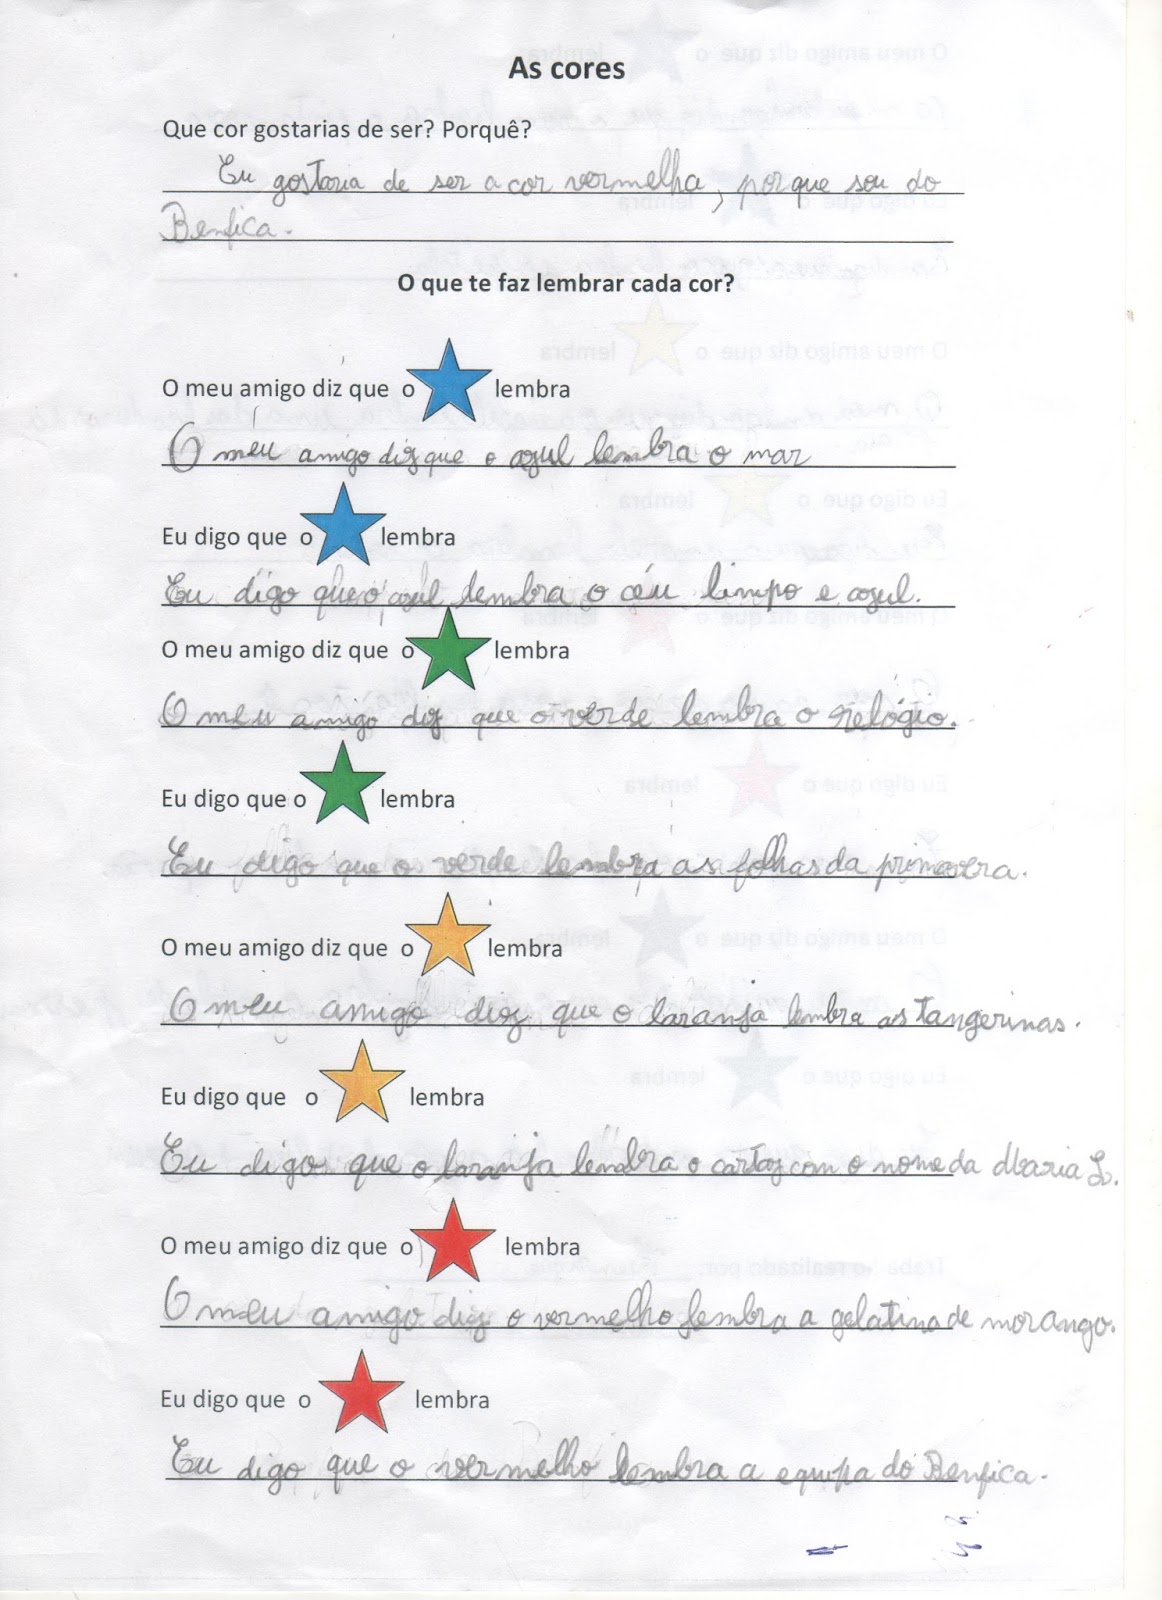 As cores
Que cor gostarias de ser? Porquê?
Eu gostaria de ser a cor vermelha, porque sou do
Benfica.
O que te faz lembrar cada cor?
O meu amigo diz que o lembra
O meu amigo diz que o azul lembra o mar
Eu digo que o lembra
Eu digo que o azul lembra o céu limpo e azul.
O meu amigo diz que o lembra
O meu amigo diz que o verde lembra o relógio.
Eu digo que o lembra
Eu digo que o verde lembra as folhas da primavera.
O meu amigo diz que o lembra
O meu amigo diz que o laranja lembra as tangerinas.
Eu digo que o lembra
Eu digo que o laranja lembra o cartaz com o nome da Maria L.
O meu amigo diz que o lembra
O meu amigo diz o vermelho lembra a gelatina de morango.
Eu digo que o lembra
Eu digo que o vermelho lembra a equipa do Benfica.